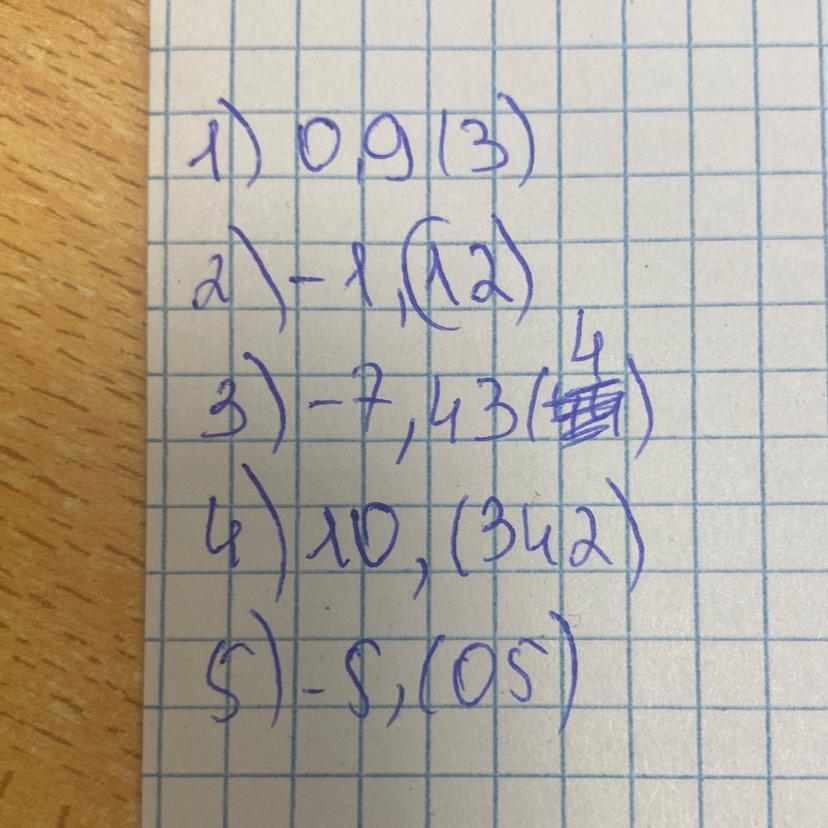 1) 0,9(3)
2) -1,(12)
3) -7,43(4)
4) 10,(342)
5) -5,(05)